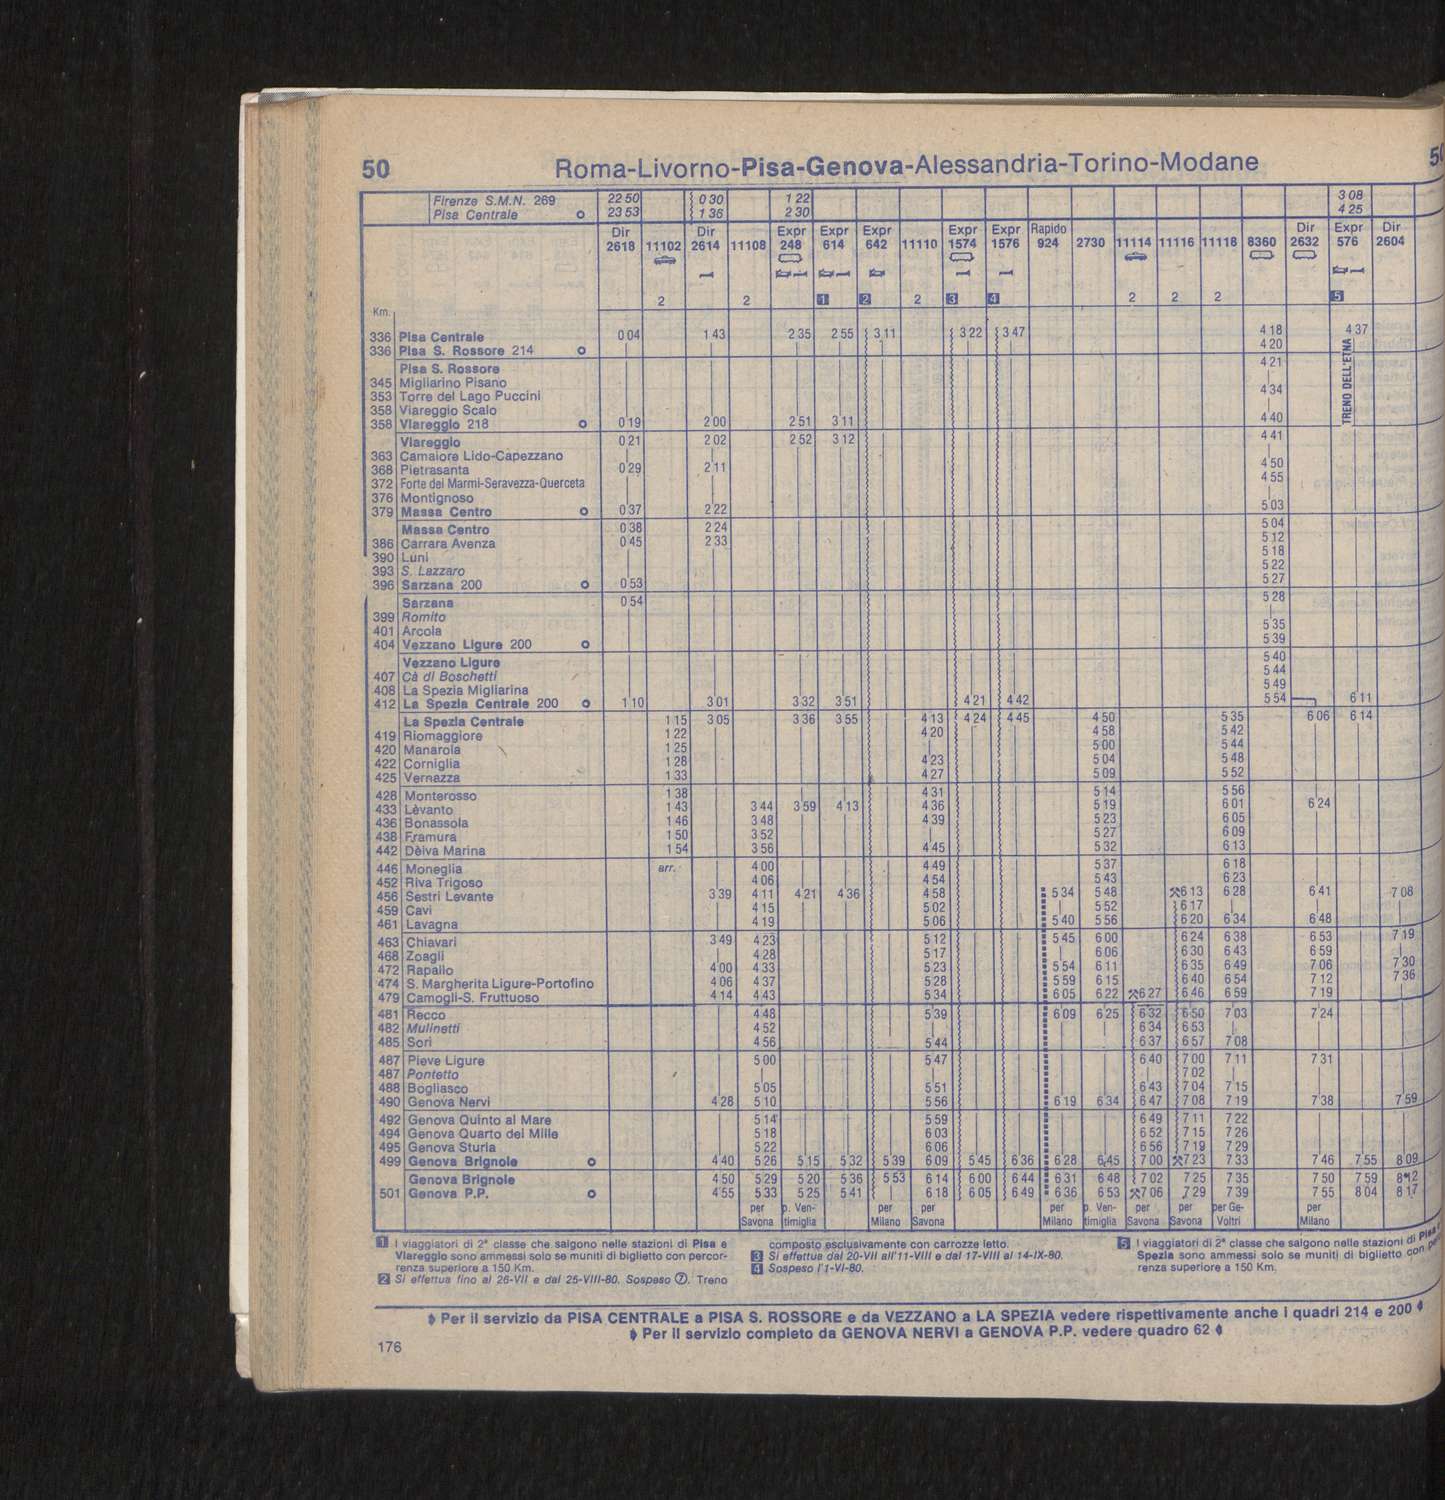 50 Roma-Livorno-Pisa-Genova-Alessandria-Torino-Modane
Firenze S.M.N. 269 22 50 0 30 1 22 3 08
Pisa Centrale o 23 53 1 35 2 30 4 25
Dir Dir Expr Expr Expr Expr Expr Rapido Dir Expr Dir
2618 11102 2614 11108 248 614 642 11110 1574 1576 924 2730 11114 11116 11118 8360 2632 576 2604
2 2 1 2 2 3 4 2 2 2 5
Km.
336 Pisa Centrale 0 04 1 43 2 35 2 55 3 11 3 22 3 47 4 18 4 37
336 Pisa S. Rossore 214 o 4 20
Pisa S. Rossore 4 21
345 Migliarino Pisano
353 Torre del Lago Puccini 4 34
358 Viareggio Scalo
358 Viareggio 218 o 0 19 2 00 2 51 3 11 4 40
TRENO DELL'ETNA
Viareggio 0 21 2 02 2 52 3 12 4 41
363 Camaiore Lido-Capezzano
368 Pietrasanta 0 29 2 11 4 50
372 Forte dei Marmi-Seravezza-Querceta 4 55
376 Montignoso
379 Massa Centro o 0 37 2 22 5 03
Massa Centro 0 38 2 24 5 04
386 Carrara Avenza 0 45 2 33 5 12
390 Luni 5 18
393 S. Lazzaro 5 22
396 Sarzana 200 o 0 53 5 27
Sarzana 0 54 5 28
399 Romito
401 Arcola 5 35
404 Vezzano Ligure 200 o 5 39
Vezzano Ligure 5 40
407 Cà di Boschetti 5 44
408 La Spezia Migliarina 5 49
412 La Spezia Centrale 200 o 1 10 3 01 3 32 3 51 4 21 4 42 5 54 6 11
La Spezia Centrale 1 15 3 05 3 36 3 55 4 13 4 24 4 45 4 50 5 35 6 06 6 14
419 Riomaggiore 1 22 4 20 4 58 5 42
420 Manarola 1 25 5 00 5 44
422 Corniglia 1 28 4 23 5 04 5 48
425 Vernazza 1 33 4 27 5 09 5 52
428 Monterosso 1 38 4 31 5 14 5 56
433 Lèvanto 1 43 3 44 3 59 4 13 4 36 5 19 6 01 6 24
436 Bonassola 1 46 3 48 4 39 5 23 6 05
438 Framura 1 50 3 52 5 27 6 09
442 Dèiva Marina 1 54 3 56 4 45 5 32 6 13
446 Moneglia arr. 4 00 4 49 5 37 6 18
452 Riva Trigoso 4 06 4 54 5 43 6 23
456 Sestri Levante 3 39 4 11 4 21 4 36 4 58 5 34 5 48 ⚒6 13 6 28 6 41 7 08
459 Cavi 4 15 5 02 5 52 6 17
461 Lavagna 4 19 5 06 5 40 5 56 6 20 6 34 6 48
463 Chiavari 3 49 4 23 5 12 5 45 6 00 6 24 6 38 6 53 7 19
468 Zoagli 4 28 5 17 6 06 6 30 6 43 6 59
472 Rapallo 4 00 4 33 5 23 5 54 6 11 6 35 6 49 7 06 7 30
474 S. Margherita Ligure-Portofino 4 06 4 37 5 28 5 59 6 15 6 40 6 54 7 12 7 36
479 Camogli-S. Fruttuoso 4 14 4 43 5 34 6 05 6 22 ⚒6 27 6 46 6 59 7 19
481 Recco 4 48 5 39 6 09 6 25 6 32 6 50 7 03 7 24
482 Mulinetti 4 52 6 34 6 53
485 Sori 4 56 5 44 6 37 6 57 7 08
487 Pieve Ligure 5 00 5 47 6 40 7 00 7 11 7 31
487 Pontetto 7 02
488 Bogliasco 5 05 5 51 6 43 7 04 7 15
490 Genova Nervi 4 28 5 10 5 56 6 19 6 34 6 47 7 08 7 19 7 38 7 59
492 Genova Quinto al Mare 5 14 5 59 6 49 7 11 7 22
494 Genova Quarto dei Mille 5 18 6 03 6 52 7 15 7 26
495 Genova Sturla 5 22 6 06 6 56 7 19 7 29
499 Genova Brignole o 4 40 5 26 5 15 5 32 5 39 6 09 5 45 6 36 6 28 6 45 7 00 ⚒7 23 7 33 7 46 7 55 8 09
Genova Brignole 4 50 5 29 5 20 5 36 5 53 6 14 6 00 6 44 6 31 6 48 7 02 7 25 7 35 7 50 7 59 8 12
501 Genova P.P. o 4 55 5 33 5 25 5 41 6 18 6 05 6 49 6 36 6 53 ⚒7 06 7 29 7 39 7 55 8 04 8 17
per p. Ven- per per per p. Ven- per per per Ge- per
Savona timiglia Milano Savona Milano timiglia Savona Savona Voltri Milano
1 I viaggiatori di 2ª classe che salgono nelle stazioni di Pisa e
Viareggio sono ammessi solo se muniti di biglietto con percor-
renza superiore a 150 Km.
2 Si effettua fino al 26-VII e dal 25-VIII-80. Sospeso ⑦. Treno
composto esclusivamente con carrozze letto.
3 Si effettua dal 20-VII all'11-VIII e dal 17-VIII al 14-IX-80.
4 Sospeso l'1-VI-80.
5 I viaggiatori di 2ª classe che salgono nelle stazioni di Pisa
Spezia sono ammessi solo se muniti di biglietto con
renza superiore a 150 Km.
Per il servizio da PISA CENTRALE a PISA S. ROSSORE e da VEZZANO a LA SPEZIA vedere rispettivamente anche i quadri 214 e 200
Per il servizio completo da GENOVA NERVI a GENOVA P.P. vedere quadro 62
176